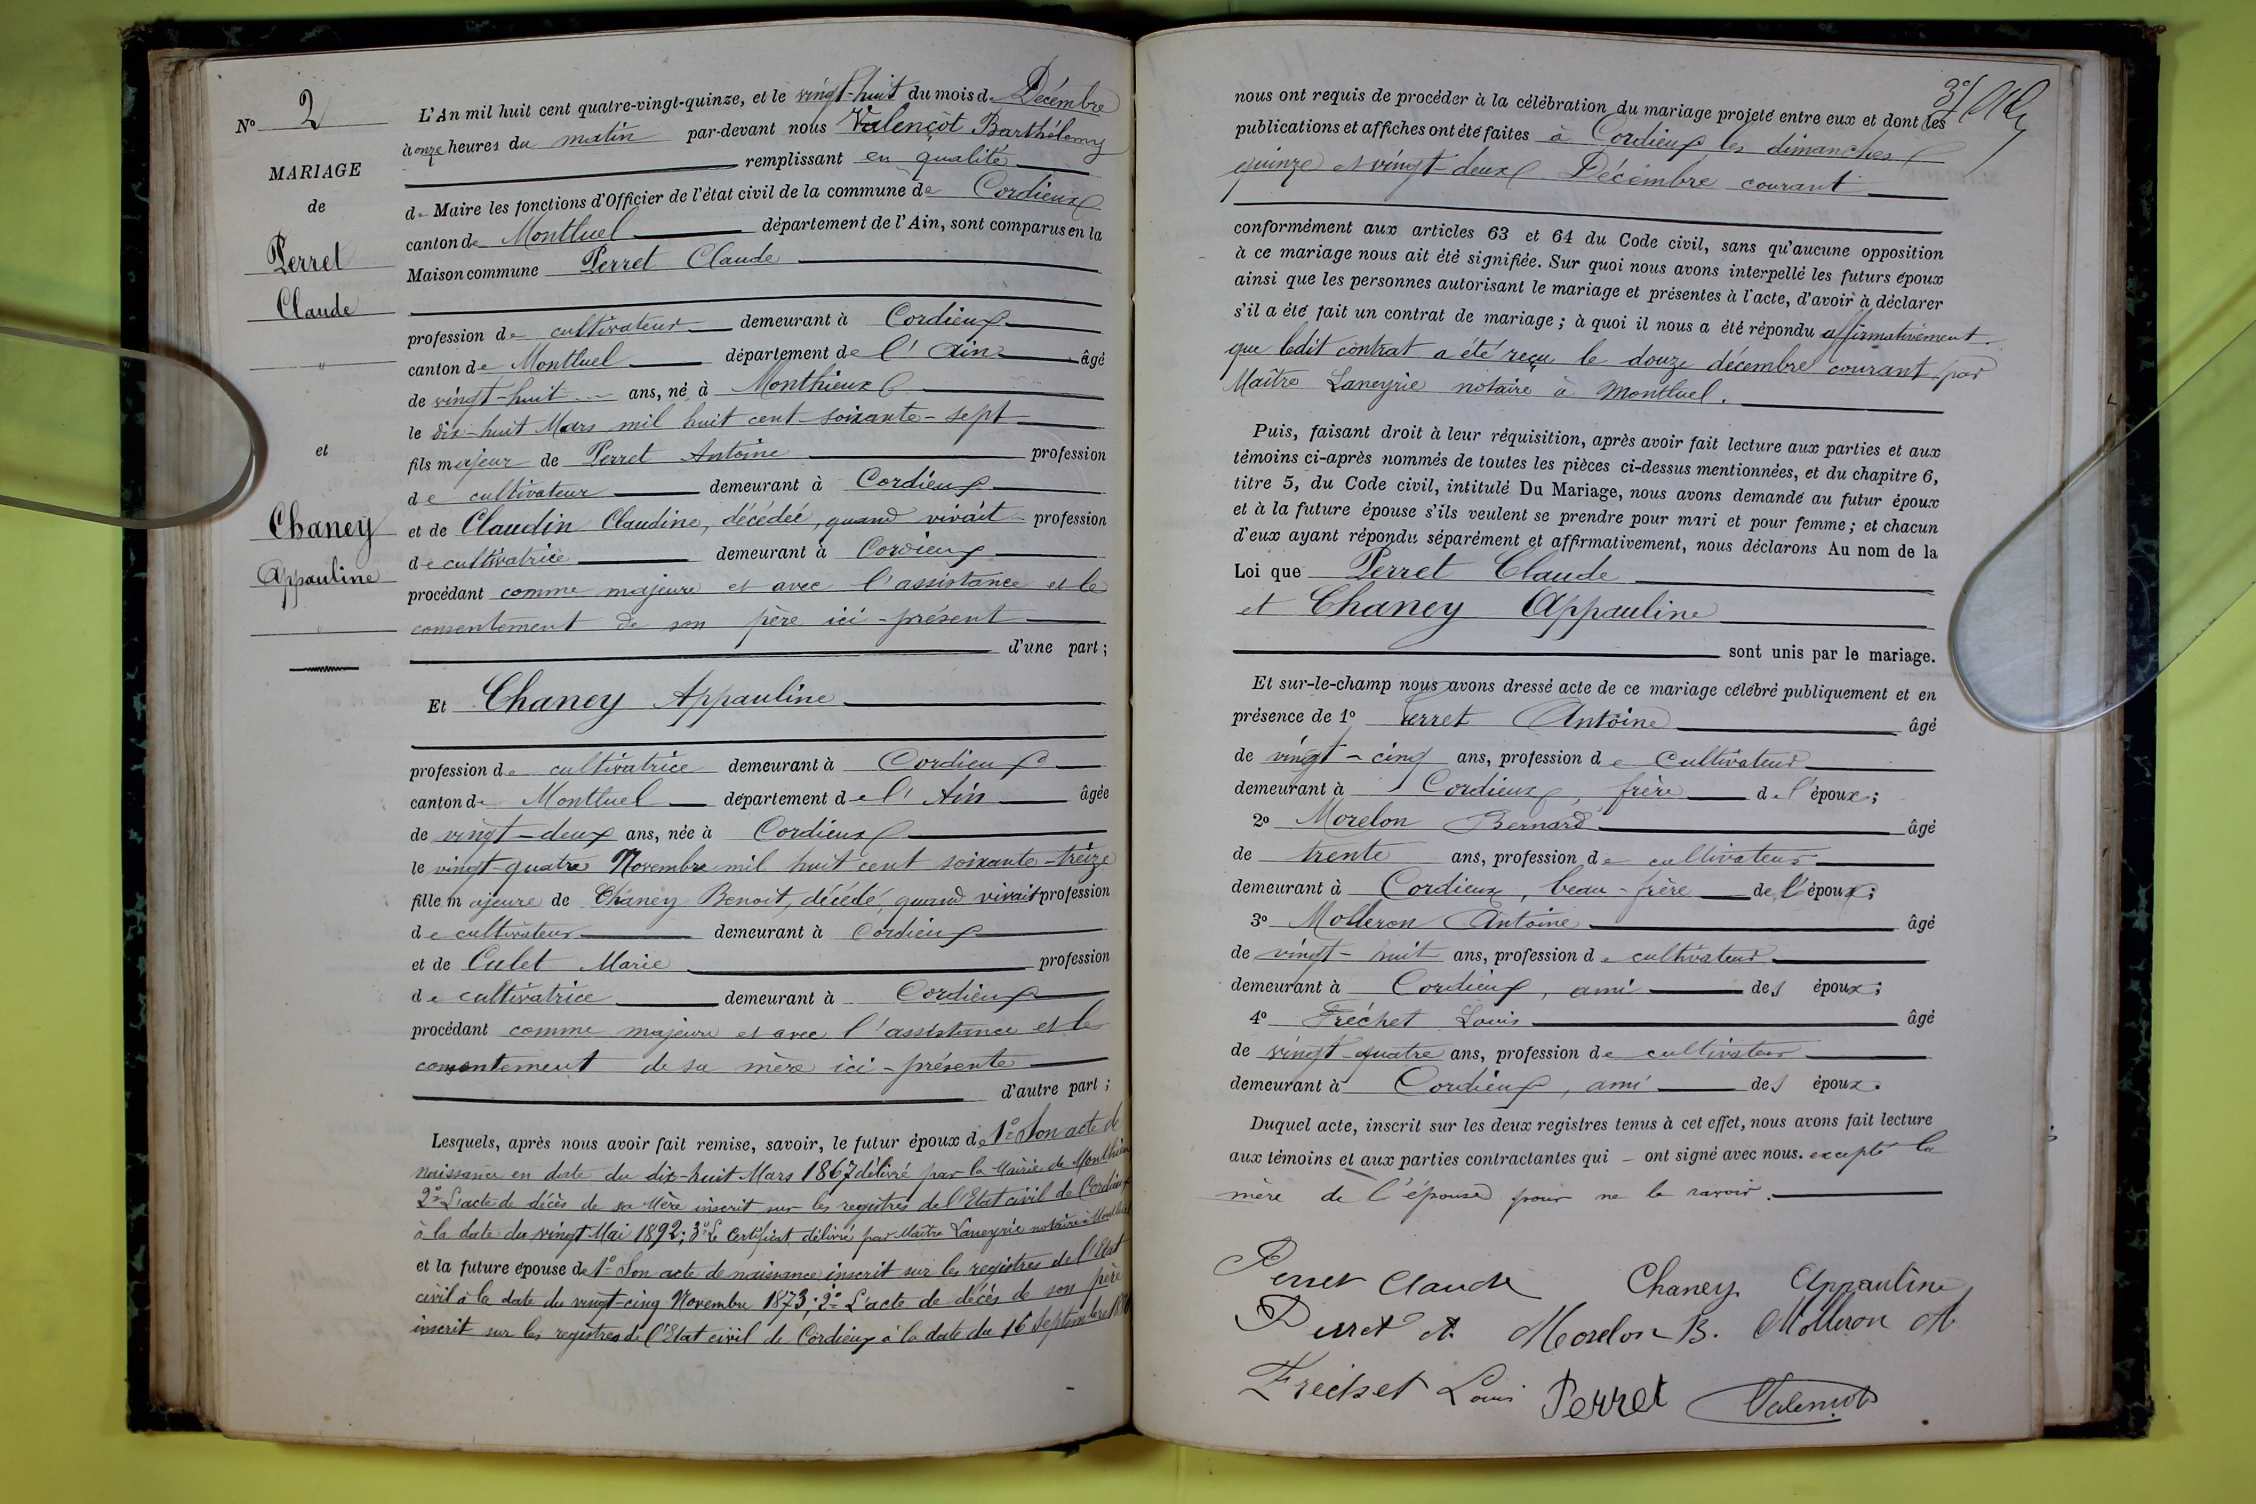 N° 2
MARIAGE
de
Perret
Claude
et
Chaney
Appauline
L'An mil huit cent quatre-vingt-quinze, et le vingt-huit du mois de Décembre
à onze heures du matin par-devant nous Valençot Barthélemy
remplissant en qualité
de Maire les fonctions d'Officier de l'état civil de la commune de Cordieux
canton de Montluel département de l'Ain, sont comparus en la
Maison commune Perret Claude
profession de cultivateur demeurant à Cordieux
canton de Montluel département de l'Ain âgé
de vingt-huit ans, né à Monthieux
le dix-huit Mars mil huit cent soixante-sept
fils majeur de Perret Antoine profession
de cultivateur demeurant à Cordieux
et de Claudin Claudine, décédée, quand vivait profession
de cultivatrice demeurant à Cordieux
procédant comme majeur et avec l'assistance et le
consentement de son père ici-présent
d'une part ;
Et Chaney Appauline
profession de cultivatrice demeurant à Cordieux
canton de Montluel département de l'Ain âgée
de vingt-deux ans, née à Cordieux
le vingt-quatre Novembre mil huit cent soixante-treize
fille majeure de Chaney Benoit, décédé, quand vivait profession
de cultivateur demeurant à Cordieux
et de Culet Marie profession
de cultivatrice demeurant à Cordieux
procédant comme majeure et avec l'assistance et le
consentement de sa mère ici-présente
d'autre part ;
Lesquels, après nous avoir fait remise, savoir, le futur époux de 1° Son acte de
naissance en date du dix-huit Mars 1867 délivré par la Mairie de Monthieux
2° L'acte de décès de sa Mère inscrit sur les registres de l'Etat civil de Cordieux
à la date du vingt Mai 1892; 3° Le Certificat délivré par Maître Laneyrie notaire à Montluel
et la future épouse de 1° Son acte de naissance inscrit sur les registres de l'Etat
civil à la date du vingt-cinq Novembre 1873; 2° L'acte de décès de son père
inscrit sur les registres de l'Etat civil de Cordieux à la date du 16 Septembre
nous ont requis de procéder à la célébration du mariage projeté entre eux et dont les
publications et affiches ont été faites à Cordieux les dimanches
quinze et vingt-deux Décembre courant
conformément aux articles 63 et 64 du Code civil, sans qu'aucune opposition
à ce mariage nous ait été signifiée. Sur quoi nous avons interpellé les futurs époux
ainsi que les personnes autorisant le mariage et présentes à l'acte, d'avoir à déclarer
s'il a été fait un contrat de mariage ; à quoi il nous a été répondu affirmativement.
que ledit contrat a été reçu le douze décembre courant par
Maître Laneyrie notaire à Montluel.
Puis, faisant droit à leur réquisition, après avoir fait lecture aux parties et aux
témoins ci-après nommés de toutes les pièces ci-dessus mentionnées, et du chapitre 6,
titre 5, du Code civil, intitulé Du Mariage, nous avons demandé au futur époux
et à la future épouse s'ils veulent se prendre pour mari et pour femme ; et chacun
d'eux ayant répondu séparément et affirmativement, nous déclarons Au nom de la
Loi que Perret Claude
et Chaney Appauline
sont unis par le mariage.
Et sur-le-champ nous avons dressé acte de ce mariage célébré publiquement et en
présence de 1° Perret Antoine âgé
de vingt-cinq ans, profession de cultivateur
demeurant à Cordieux, frère de l'époux ;
2° Morelon Bernard âgé
de trente ans, profession de cultivateur
demeurant à Cordieux, beau-frère de l'époux ;
3° Molleron Antoine âgé
de vingt-huit ans, profession de cultivateur
demeurant à Cordieux, ami des époux ;
4° Fréchet Louis âgé
de vingt-quatre ans, profession de cultivateur
demeurant à Cordieux, ami des époux.
Duquel acte, inscrit sur les deux registres tenus à cet effet, nous avons fait lecture
aux témoins et aux parties contractantes qui – ont signé avec nous. excepté la
mère de l'épouse pour ne le savoir.
Perret Claude Chaney Appauline
Perret A. Morelon B. Molleron A
Frechet Louis Perret Valençot